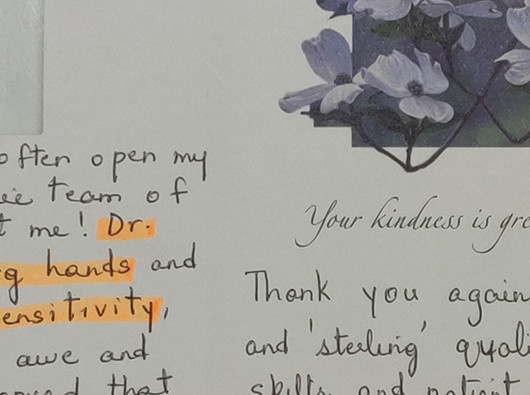 often open my
team of
me! Dr.
hands and
ensitivity,
awe and
that
Your kindness is gre
Thank you again
and 'sterling' quali
skills and patient